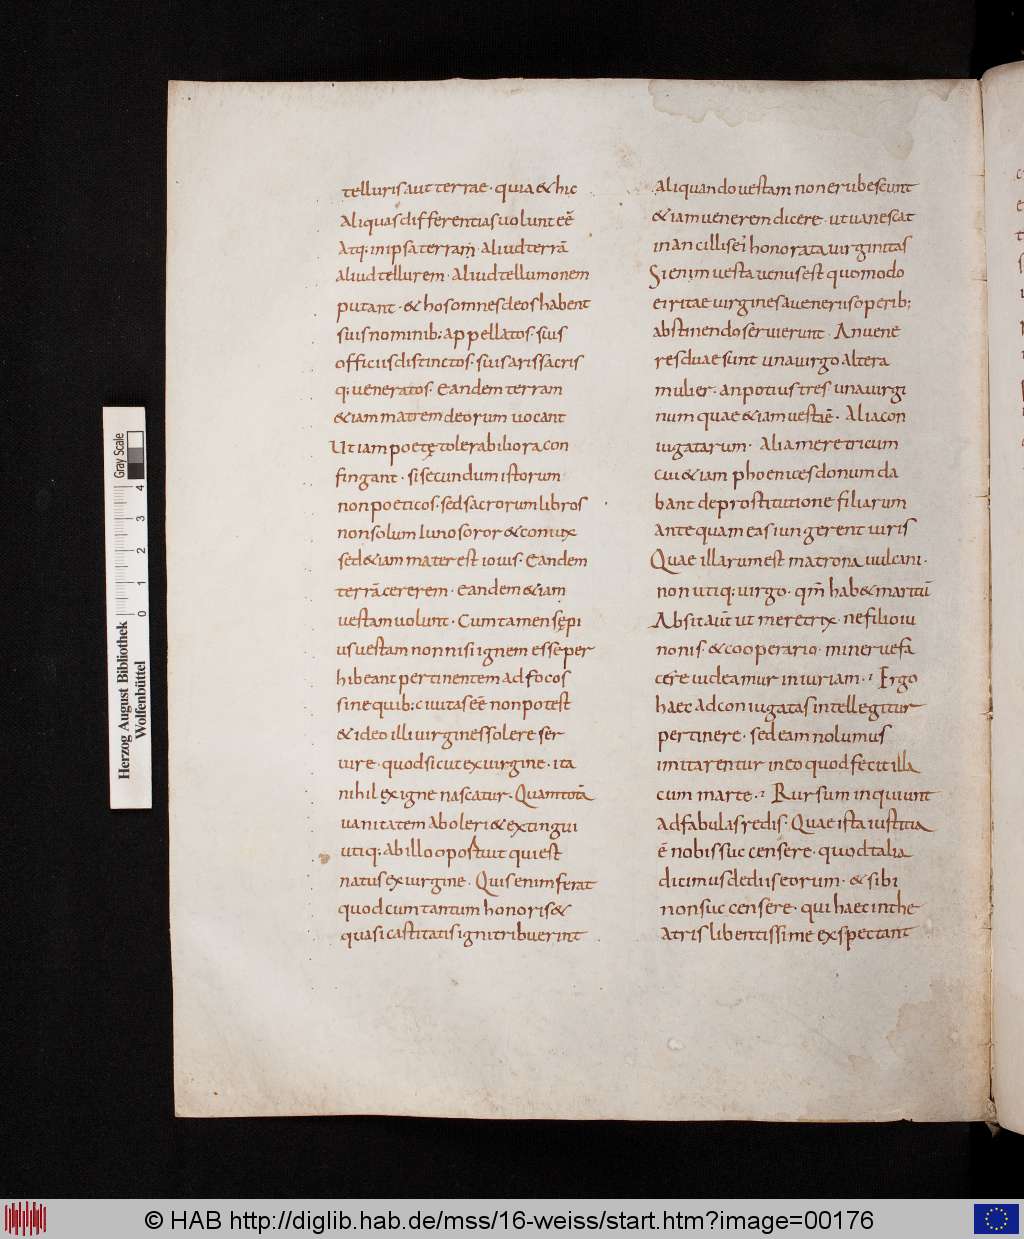 tellurisaut terrae · quia & hic
aliquas differentias uolunt eē
atq; inipsa terraṃ · aliud terrā
aliud tellurem · aliud tellumonem
putant · & hos omnes deos habent
suis nominib; appellatos · suis
officiis distinctos · suis aris sacris
q; ueneratos · Eandem terram
&iam matrem deorum uocant
Ut iam poetę tolerabiliora con
fingant · si secundum istorum
non poeticos · sed sacrorum libros
non solum iuno soror & coniux
sed &iam mater est iouis · Eandem
terrā cererem · eandem &iam
uestam uolunt · Cum tamen sępi
us uestam non nisi ignem esse per
hibeant pertinentem ad focos
sine quib; ciuitas eē non potest
& ideo illi uirgines solere ser
uire · quod sicut ex uirgine · ita
nihil ex igne nascatur · Quam totā
uanitatem aboleri & extingui
utiq; ab illo opostuit qui est
natus ex uirgine · Quis enim ferat
quod cum tantum honoris &
quasi castitatis igni tribuerint
aliquando uestam non erubescunt
&iam uenerem dicere · ut uanescat
in ancillis ei honorata uirginitas
Si enim uesta uenus est quomodo
ei ritae uirgines a ueneriis operib;
abstinendo seruierunt · An uene
res duae sunt una uirgo altera
mulier · an potius tres una uirgi
num quae &iam uesta ē · Alia con
iugatarum · Alia meretricum
cui &iam phoenices donum da
bant de prostitutione filiarum
antequam eas iungerent uiris
Quae illarum est matrona uulcani ·
non utiq; uirgo · qm̄ hab& maritū
Absit aūt ut meretrix · ne filio iu
nonis · & cooperario · mineruę fa
cere uideamur iniuriam · Ergo
haec ad coniugatas intellegitur
pertinere · sed eam nolumus
imitarentur in eo quod fecit illa
cum marte · Rursum inquiunt
ad fabulas redis · Quae ista iustitia
ē nobis suc censere · quod talia
dicimus de diis eorum · & sibi
non suc censere · qui haec in the
atris libentissime exspectant
Herzog August Bibliothek
Wolfenbüttel
0 1 2 3 4
Gray Scale
© HAB http://diglib.hab.de/mss/16-weiss/start.htm?image=00176